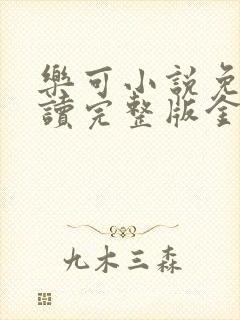 樂可小説免
讀完整版全
九木三森